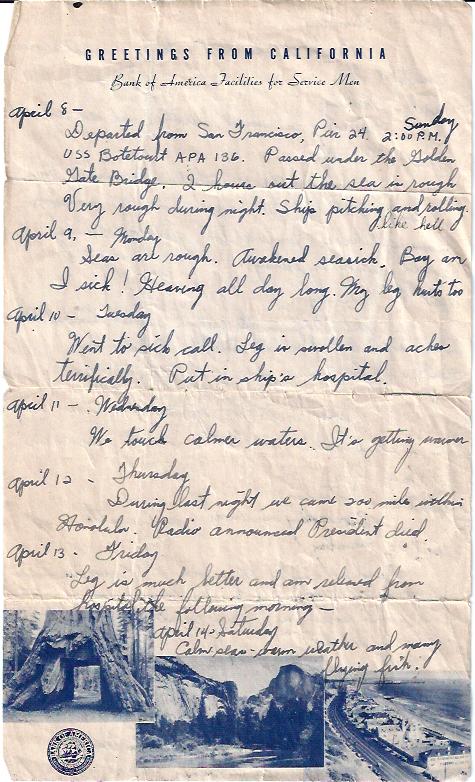 GREETINGS FROM CALIFORNIA
Bank of America Facilities for Service Men
April 8 –
Sunday
Departed from San Francisco, Pier 24 2:00 P.M.
USS Botetourt APA 136. Passed under the Golden
Gate Bridge. 2 hours out the sea is rough
Very rough during night. Ship pitching and rolling
like hell
April 9, – Monday
Seas are rough. Awakened seasick. Boy am
I sick! Heaving all day long. My leg hurts too
April 10 – Tuesday
Went to sick call. Leg is swollen and aches
terrifically. Put in ship's hospital.
April 11 – Wednesday
We touch calmer waters. It's getting warmer
April 12 - Thursday
During last night we came 200 miles within
Honolulu. Radio announced President died.
April 13 - Friday
Leg is much better and am released from
hospital the following morning –
April 14 - Saturday
Calm seas – warm weather and many
flying fish.
BANK OF AMERICA